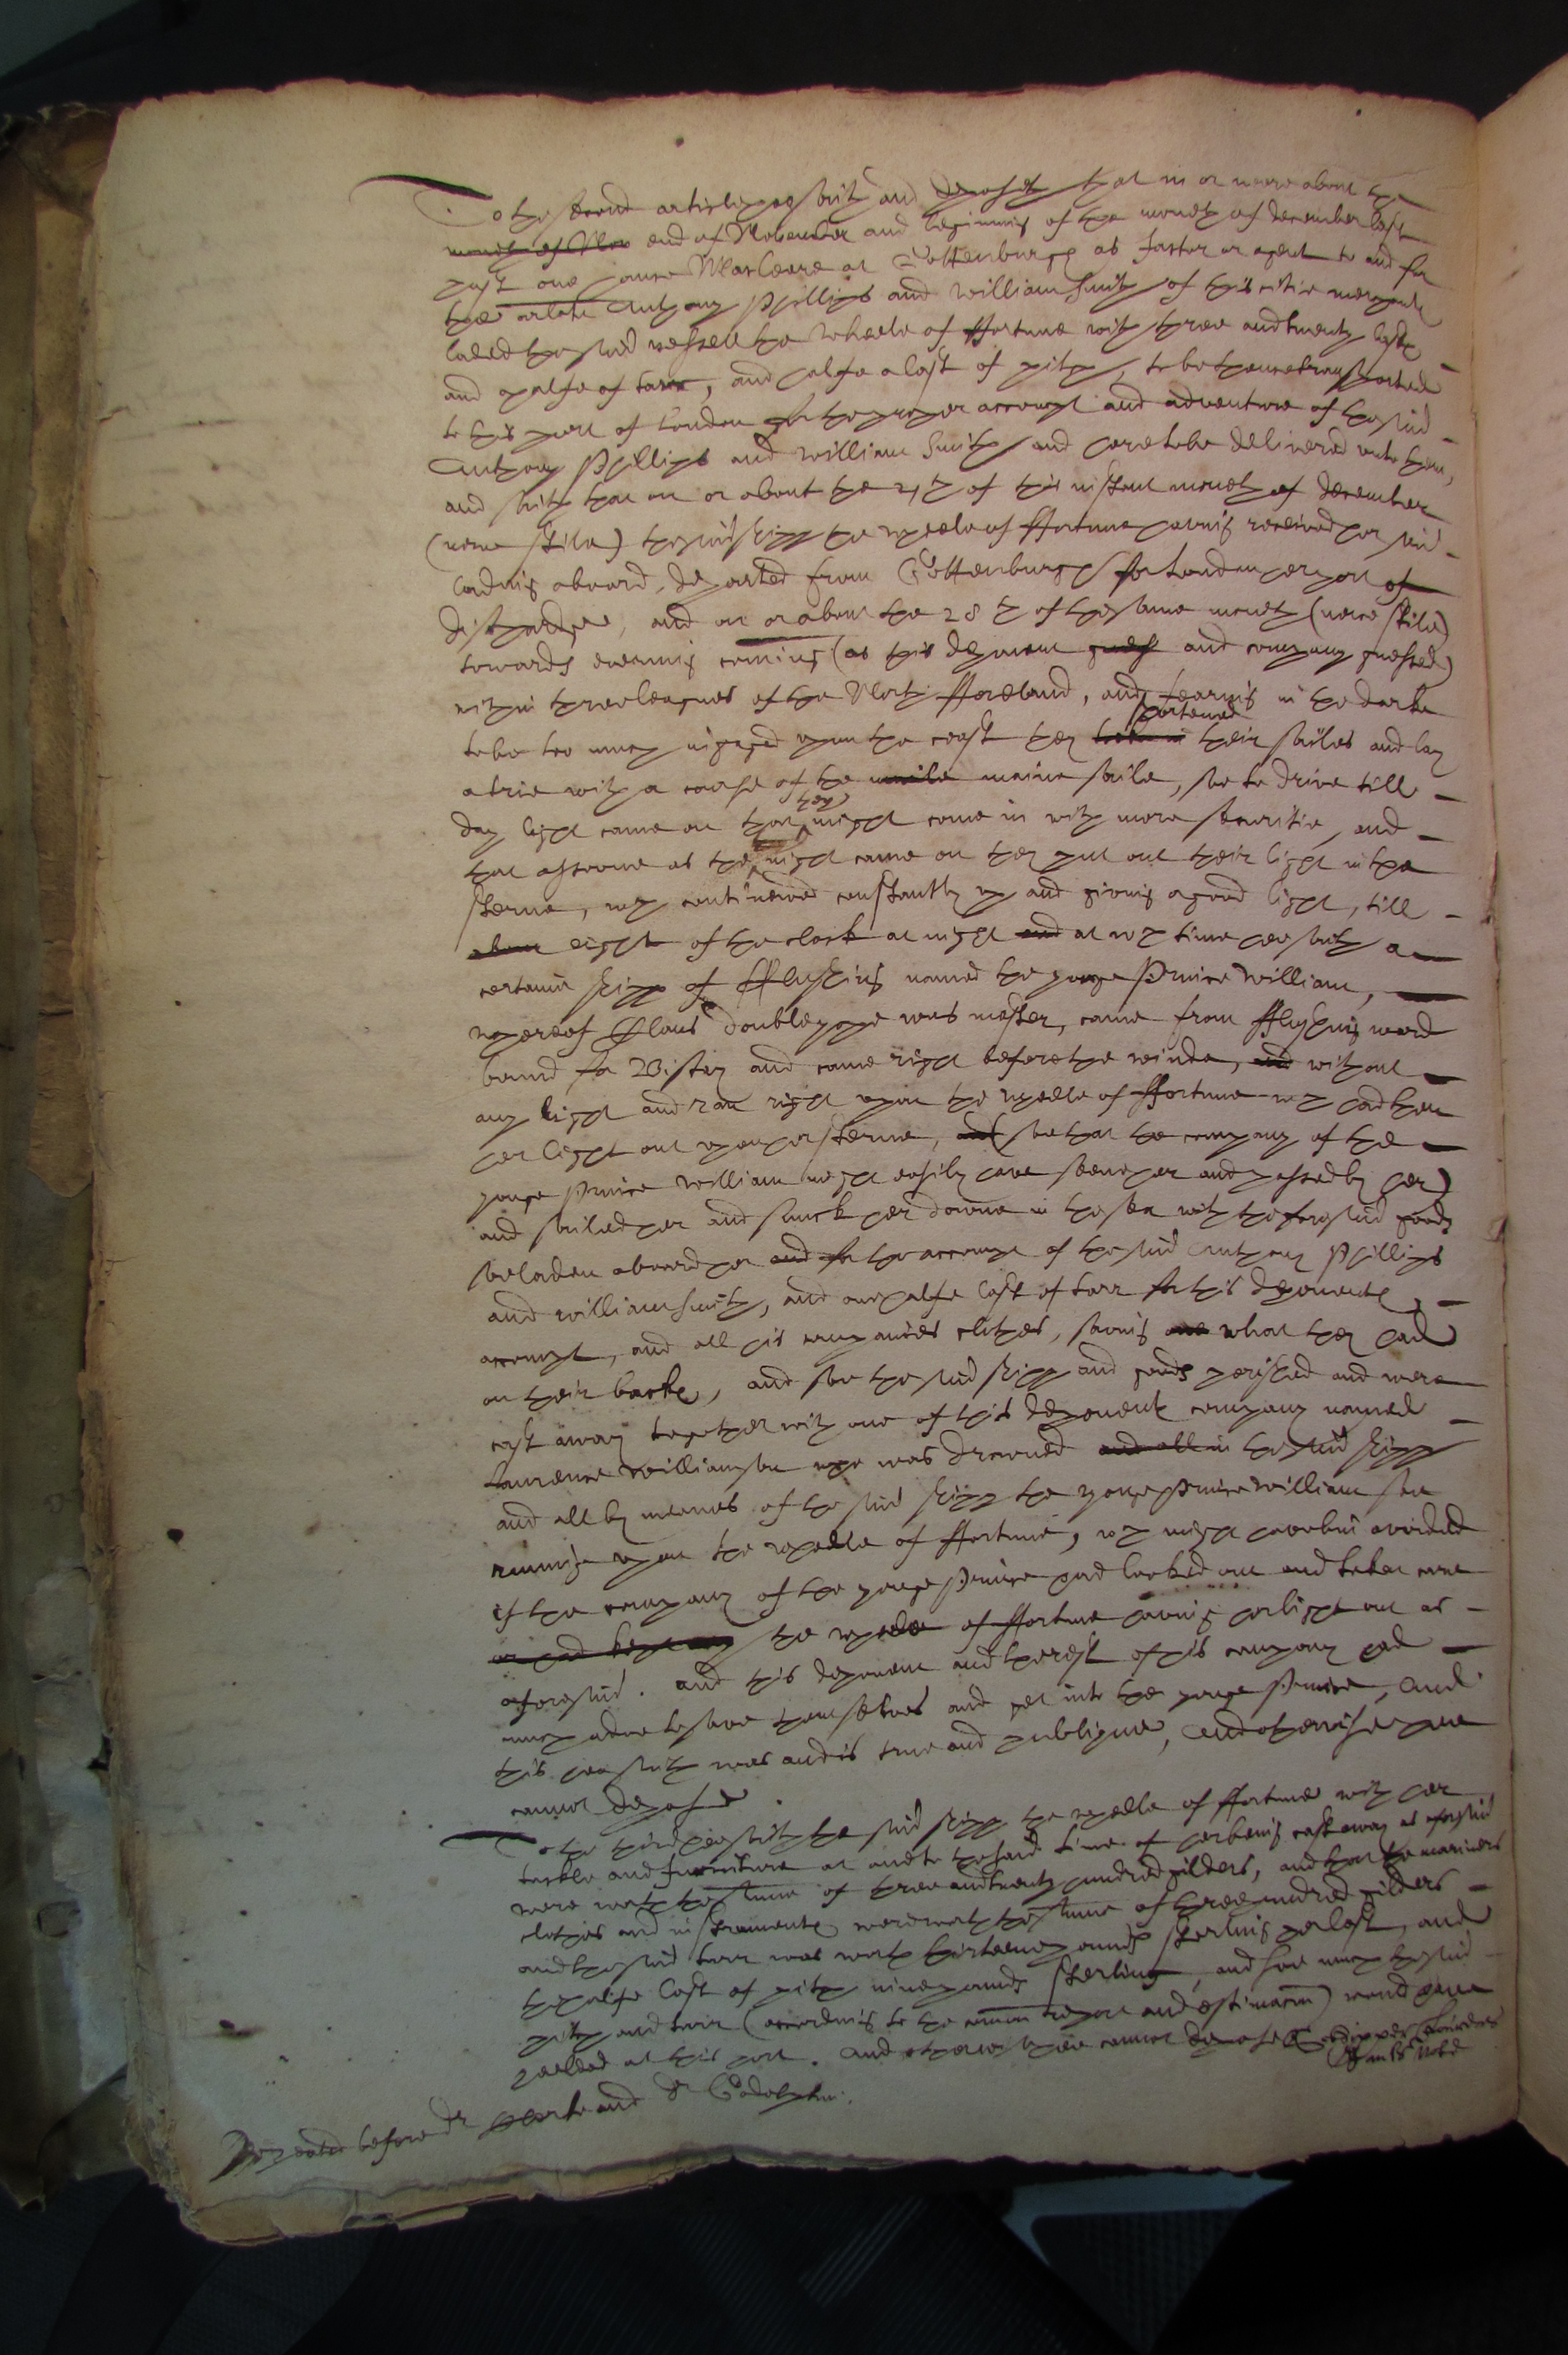 To the second article hee saith and deposeth that in or neere about the
moneth of Nov end of November and beginning of the moneth of december last
past one James Macleere at Gottenburgh as factor or agent to and for
the arlate Anthony Phillips and William Smith of this citie merchants
laded the said vessell the Wheele of ffortune with three and twenty lasts
and a halfe of tarr, and halfe a last of pitch, to be thence transported
to this port of London for the proper accompt and adventure of the said
Anthony Phillips and William Smith and here to be delivered unto them,
and saith that on or about the 21th of this instant moneth of december
(newe stile) the said shipp the wheele of ffortune having received her said
ladeing aboard, departed from Gottenburgh for London her port of
discharge, and on or about the 28th of the same moneth (newe stile)
towards evening coming (as this deponent guess and company guessed)
within three leagues of the North fforeland, and fearing in the darke
to be too much ingaged upon the coast they tooke in shortened their sailes and lay
a trie with a course of the maile maine saile, soe to drive till
day light came on that they might come in with more securitie, and
that assoone as the night came on they put out their light in the
sterne, which continewed constantly up and giving a good light, till
about eight of the clock at night and at which time hee saith a
certaine shipp of fflushing named the yonge Prince William,
whereof Claus Doublepype was master, came from fflushing ward
bound for Bistay and came right before the winde, and without
any light and ran right upon the wheele of ffortune which had then
her light out upon her sterne, and (soe that the company of the
yonge Prince William might easily have seene her and passed by her)
and sailed her and sunck her downe in the sea with the foresaid goods
soe laden aboard her and for the accompt of the said Anthony Phillips
and William Smith, and one halfe last of tarr for this deponents
accompt, and all his companies clothes, saving one what they had
on their backs, and soe the said shipp and goods perished and were
cast away together with one of this deponents company named
Laurence Williamson who was drowned and all in the said shipp
and all by meanes of the said shipp the yonge Prince William soe
runninge upon the wheele of ffortune, which might have bin avoided
if the company of the yonge Prince had looked out and taken care
or had kept any the wheele of ffortune having her light out as
aforesaid. And this deponent and the rest of his company had
much adoe to save themselves and get into the yonge Prince, And
this hee saith was and is true and publique, And otherwise hee
cannot depose.
To the third hee saith the said shipp the wheele of ffortune with her
tackle and furniture at and to the said time of her being cast away as aforesaid
were worth the summe of three and twenty hundred gilders, and that the mariners
clothes and instruments were worth the summe of three hundred gilders
and the said tarr was worth thirteene pounds sterling per last, and
the halfe last of pitch nine pounds sterling, and soe much the said
pitch and tarr (according to the common report and estimacon) would have
yeelded at this port. And otherwise hee cannot depose
Repeated before dr Clerke and dr Godolphin.